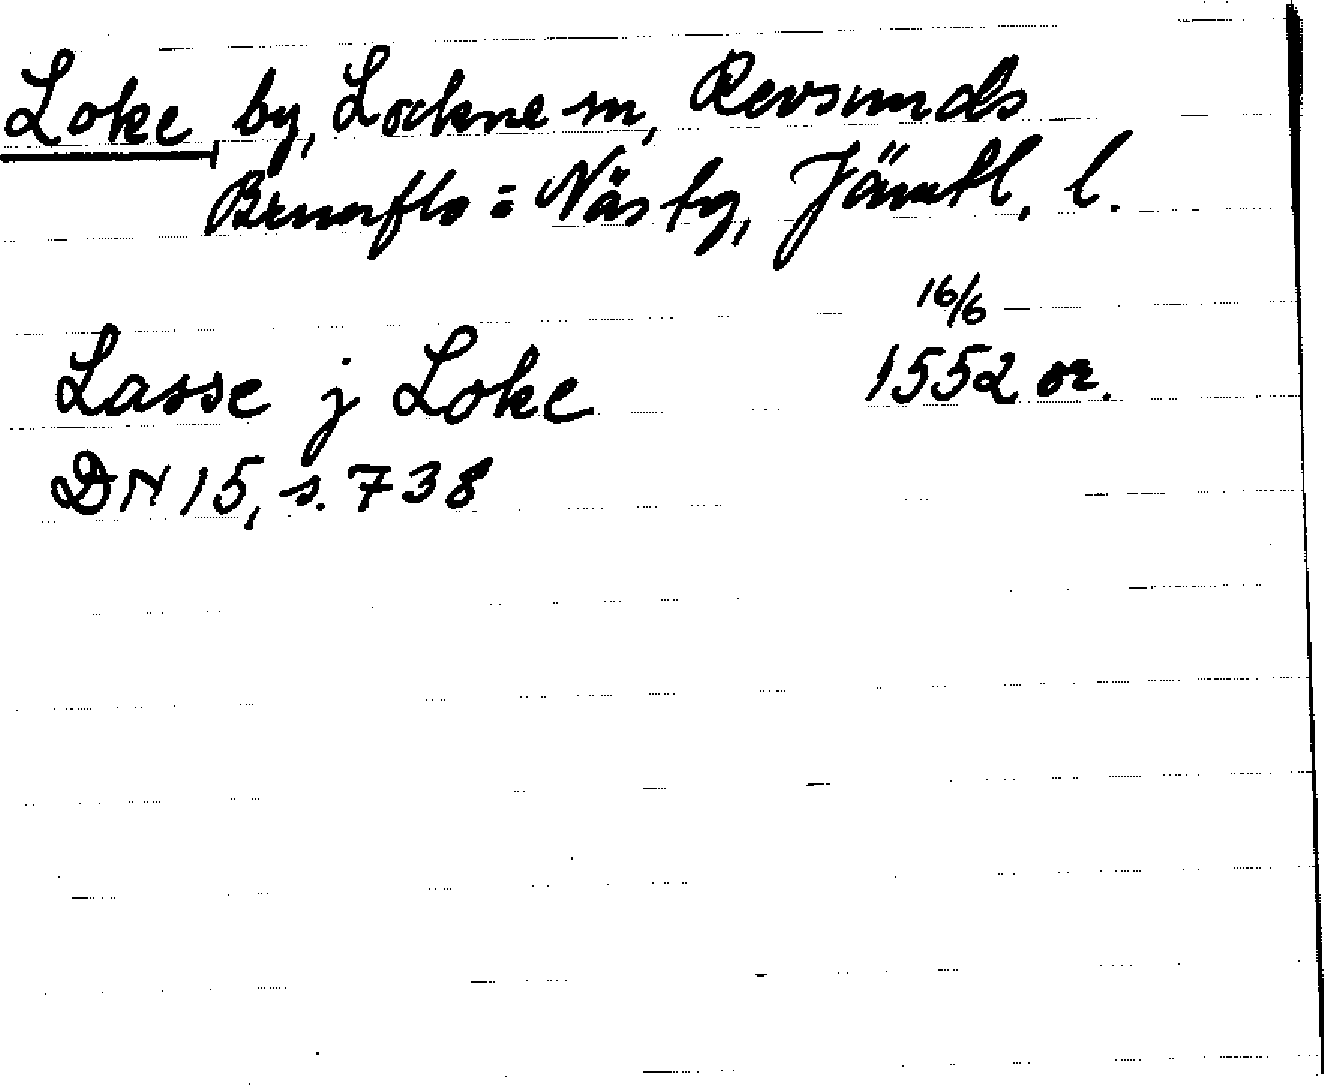 Loke by, Lockne sn, Revsunds
Brunflo = Näs tg, Jämtl. l.
16/6
Lasse j Loke 1552 or.
DN 15, s. 738